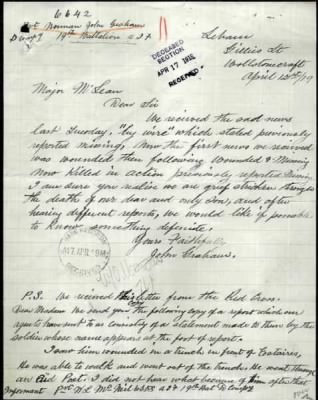 6642
Pte Norman John Graham
D Coy 19th Battalion A.I.F.
DECEASED
SECTION
APR 17
RECEIVED
Gillies St
Wollstonecraft
April 12th/19
Major McLean
Dear Sir
We received the sad news
last Tuesday, "by wire" which stated previously
reported missing, Now the first news we received
was wounded then following Wounded & Missing
Now Killed in Action previously reported Missing
I am sure you realise we are grief stricken through
the death of our dear and only Son, and after
hearing different reports, we would like if possible
to know something definite.
Yours Faithfully
John Graham.
RECEIVED
P.S. We received this letter from the Red Cross.
Dear Madam We send you the following copy of a report which our
agents have sent to us consisting of a statement made to them by the
soldier whose name appears at the foot of report.
I saw him wounded in a trench in front of
He was able to walk and went out of the trenches. He went through
an Aid Post. I did not hear what became of him after that
Informant Pte W.L. 6658 A.I.F. 19th Batt D Coy